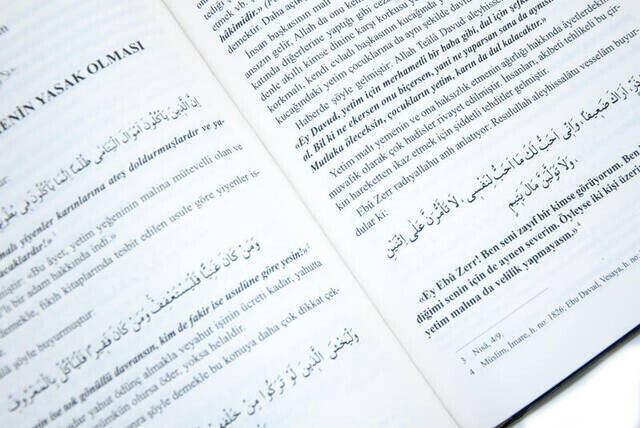 ENİN YASAK OLMASI
إِنَّ الَّذِينَ يَأْكُلُونَ أَمْوَالَ الْيَتَامَى ظُلْمًا إِنَّمَا يَأْكُلُونَ فِي
malı yiyenler karınlarına ateş doldurmuşlardır ve ya-
caklardır!»
miştir: «Bu âyet, yetim yeğeninin malına mütevelli olan ve
d'li bir adam hakkında indi.»
demekle, fıkıh kitaplarında tesbit edilen usule göre yiyenler is-
şöyle buyurmuştur:
وَمَنْ كَانَ غَنِيًّا فَلْيَسْتَعْفِفْ وَمَنْ كَانَ فَقِيرًا فَلْيَأْكُلْ بِالْمَعْرُوفِ
enin ise tok gönüllü davransın, kim de fakir ise usulüne göre yesin!»³
kadar yahut ödünç almakla veyahut işinin ücreti kadar, yahutta
mümkün olursa öder, yoksa helaldir.
onra şöyle demekle bu konuya daha çok dikkat çek-
وَلْيَخْشَ الَّذِينَ لَوْ تَرَكُوا مِنْ خَلْفِهِمْ
hâkimdir» (
demektir. Daha açık
İnsan başkasının malı
ansızın gelir. Allah da onu ken
katında diğerlerine yaptığı gibi ceza
denle akıllı kimse dilinc karşı korkusu y
korkmalı, kendi evladı başkasının kucağında
kucağındaki yetim çocuklarına da aynı şekilde davr
Haberde şöyle gelmiştir: Allah Teâlâ Davud aleyhissel
«Ey Davud, yetim için merhametli bir baba gibi, dul için şefkatl
ol. Bil ki ne ekersen onu biçersen, yani ne yaparsan sana da aynısı
Mutlaka öleceksin, çocukların yetim, karın da dul kalacaktır.»
Yetim malı yemenin ve ona haksızlık etmenin ağırlığı hakkında âyetlerdekine
muvafık olarak çok hadisler rivayet edilmiştir. İnsanları, akıbeti tehlikeli bu çir-
kin hareketten ikaz etmek için şiddetli tehditler gelmiştir.
Ebû Zerr radıyallahu anh anlatıyor: Resulullah aleyhissalâtu vesselâm buyur-
dular ki:
أَرَاكَ ضَعِيفًا، وَإِنِّي أُحِبُّ لَكَ مَا أُحِبُّ لِنَفْسِي، لَا تَأَمَّرَنَّ عَلَى اثْنَيْنِ
وَلَا تَوَلَّيَنَّ مَالَ يَتِيمٍ
«Ey Ebû Zerr! Ben seni zayıf bir kimse görüyorum. Ben
diğimi senin için de aynen severim. Öyleyse iki kişi üzeri
yetim malına da velilik yapmayasın.»⁴
3 Nisâ, 4/9.
4 Müslim, İmare, h. no: 1826; Ebu Davud, Vesaya, h. no: